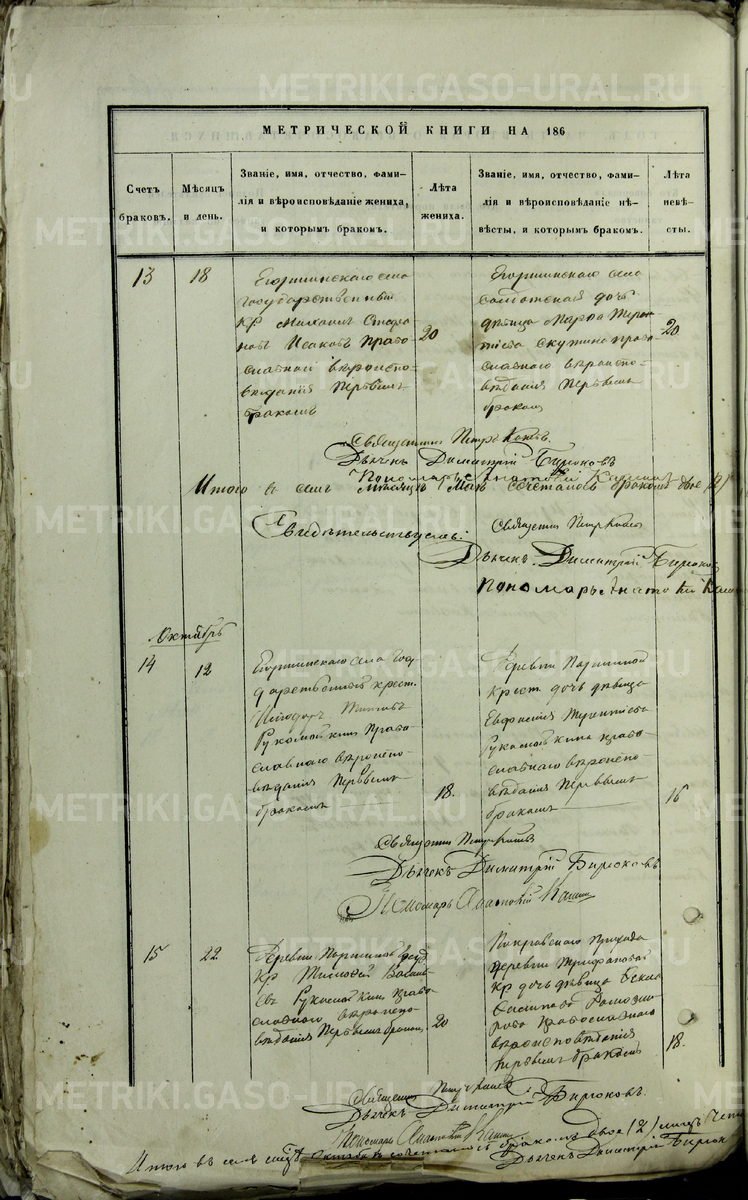 МЕТРИЧЕСКОЙ КНИГИ НА 186
Счетъ браковъ.
Мѣсяцъ и день.
Званіе, имя, отчество, фами-
лія и вѣроисповѣданіе жениха,
и которымъ бракомъ.
Лѣта жениха.
Званіе, имя, отчество, фами-
лія и вѣроисповѣданіе не-
вѣсты, и которымъ бракомъ.
Лѣта невѣ-
сты.
13
18
Егоршинскаго села
государственный
кр Михаилъ Стефа
новъ Исаковъ право
славнаго вѣроиспо-
вѣданія первымъ
бракомъ
20
Егоршинскаго села
солдатская дочь
дѣвица Марѳа
Скутина право
славнаго вѣроиспо-
вѣданія первымъ
бракомъ
20
Священникъ Петръ
Дьячекъ Димитрій Бирюковъ
Пономарь
Итого въ семъ мѣсяцѣ Маѣ сочеталось бракомъ двое (2)
Свидѣтельствуемъ:
Священникъ Петръ
Дьячекъ Димитрій Бирюковъ
Пономарь
Октябрь
14
12
Егоршинскаго села Госу
дарственный крест.
Рукомойкинъ право
славнаго вѣроиспо-
вѣданія первымъ
бракомъ
18.
Деревни Паршиной
крест дочь дѣвица
Евфросинія
Рукомойкина право
славнаго вѣроиспо-
вѣданія первымъ
бракомъ
16
Священникъ Петръ
Дьячекъ Димитрій Бирюковъ
Пономарь
15
22
Деревни Паршиной
кр Тимофей Василь
евъ Рукомойкинъ право
славнаго вѣроиспо-
вѣданія первымъ бракомъ
20
Покровскаго прихода
деревни Трифановой
кр дочь дѣвица
православнаго
вѣроисповѣданія
первымъ бракомъ
18.
Священникъ Петръ
Дьячекъ Димитрій Бирюковъ.
Пономарь
Итого въ семъ мѣсяцѣ Октябрѣ сочеталось бракомъ двое (2)
Дьячекъ Димитрій Бирюк
METRIKI.GASO-URAL.RU